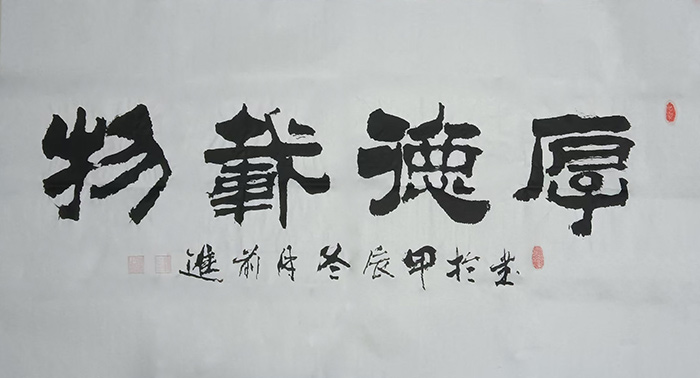 厚德載物
於甲辰冬月前進